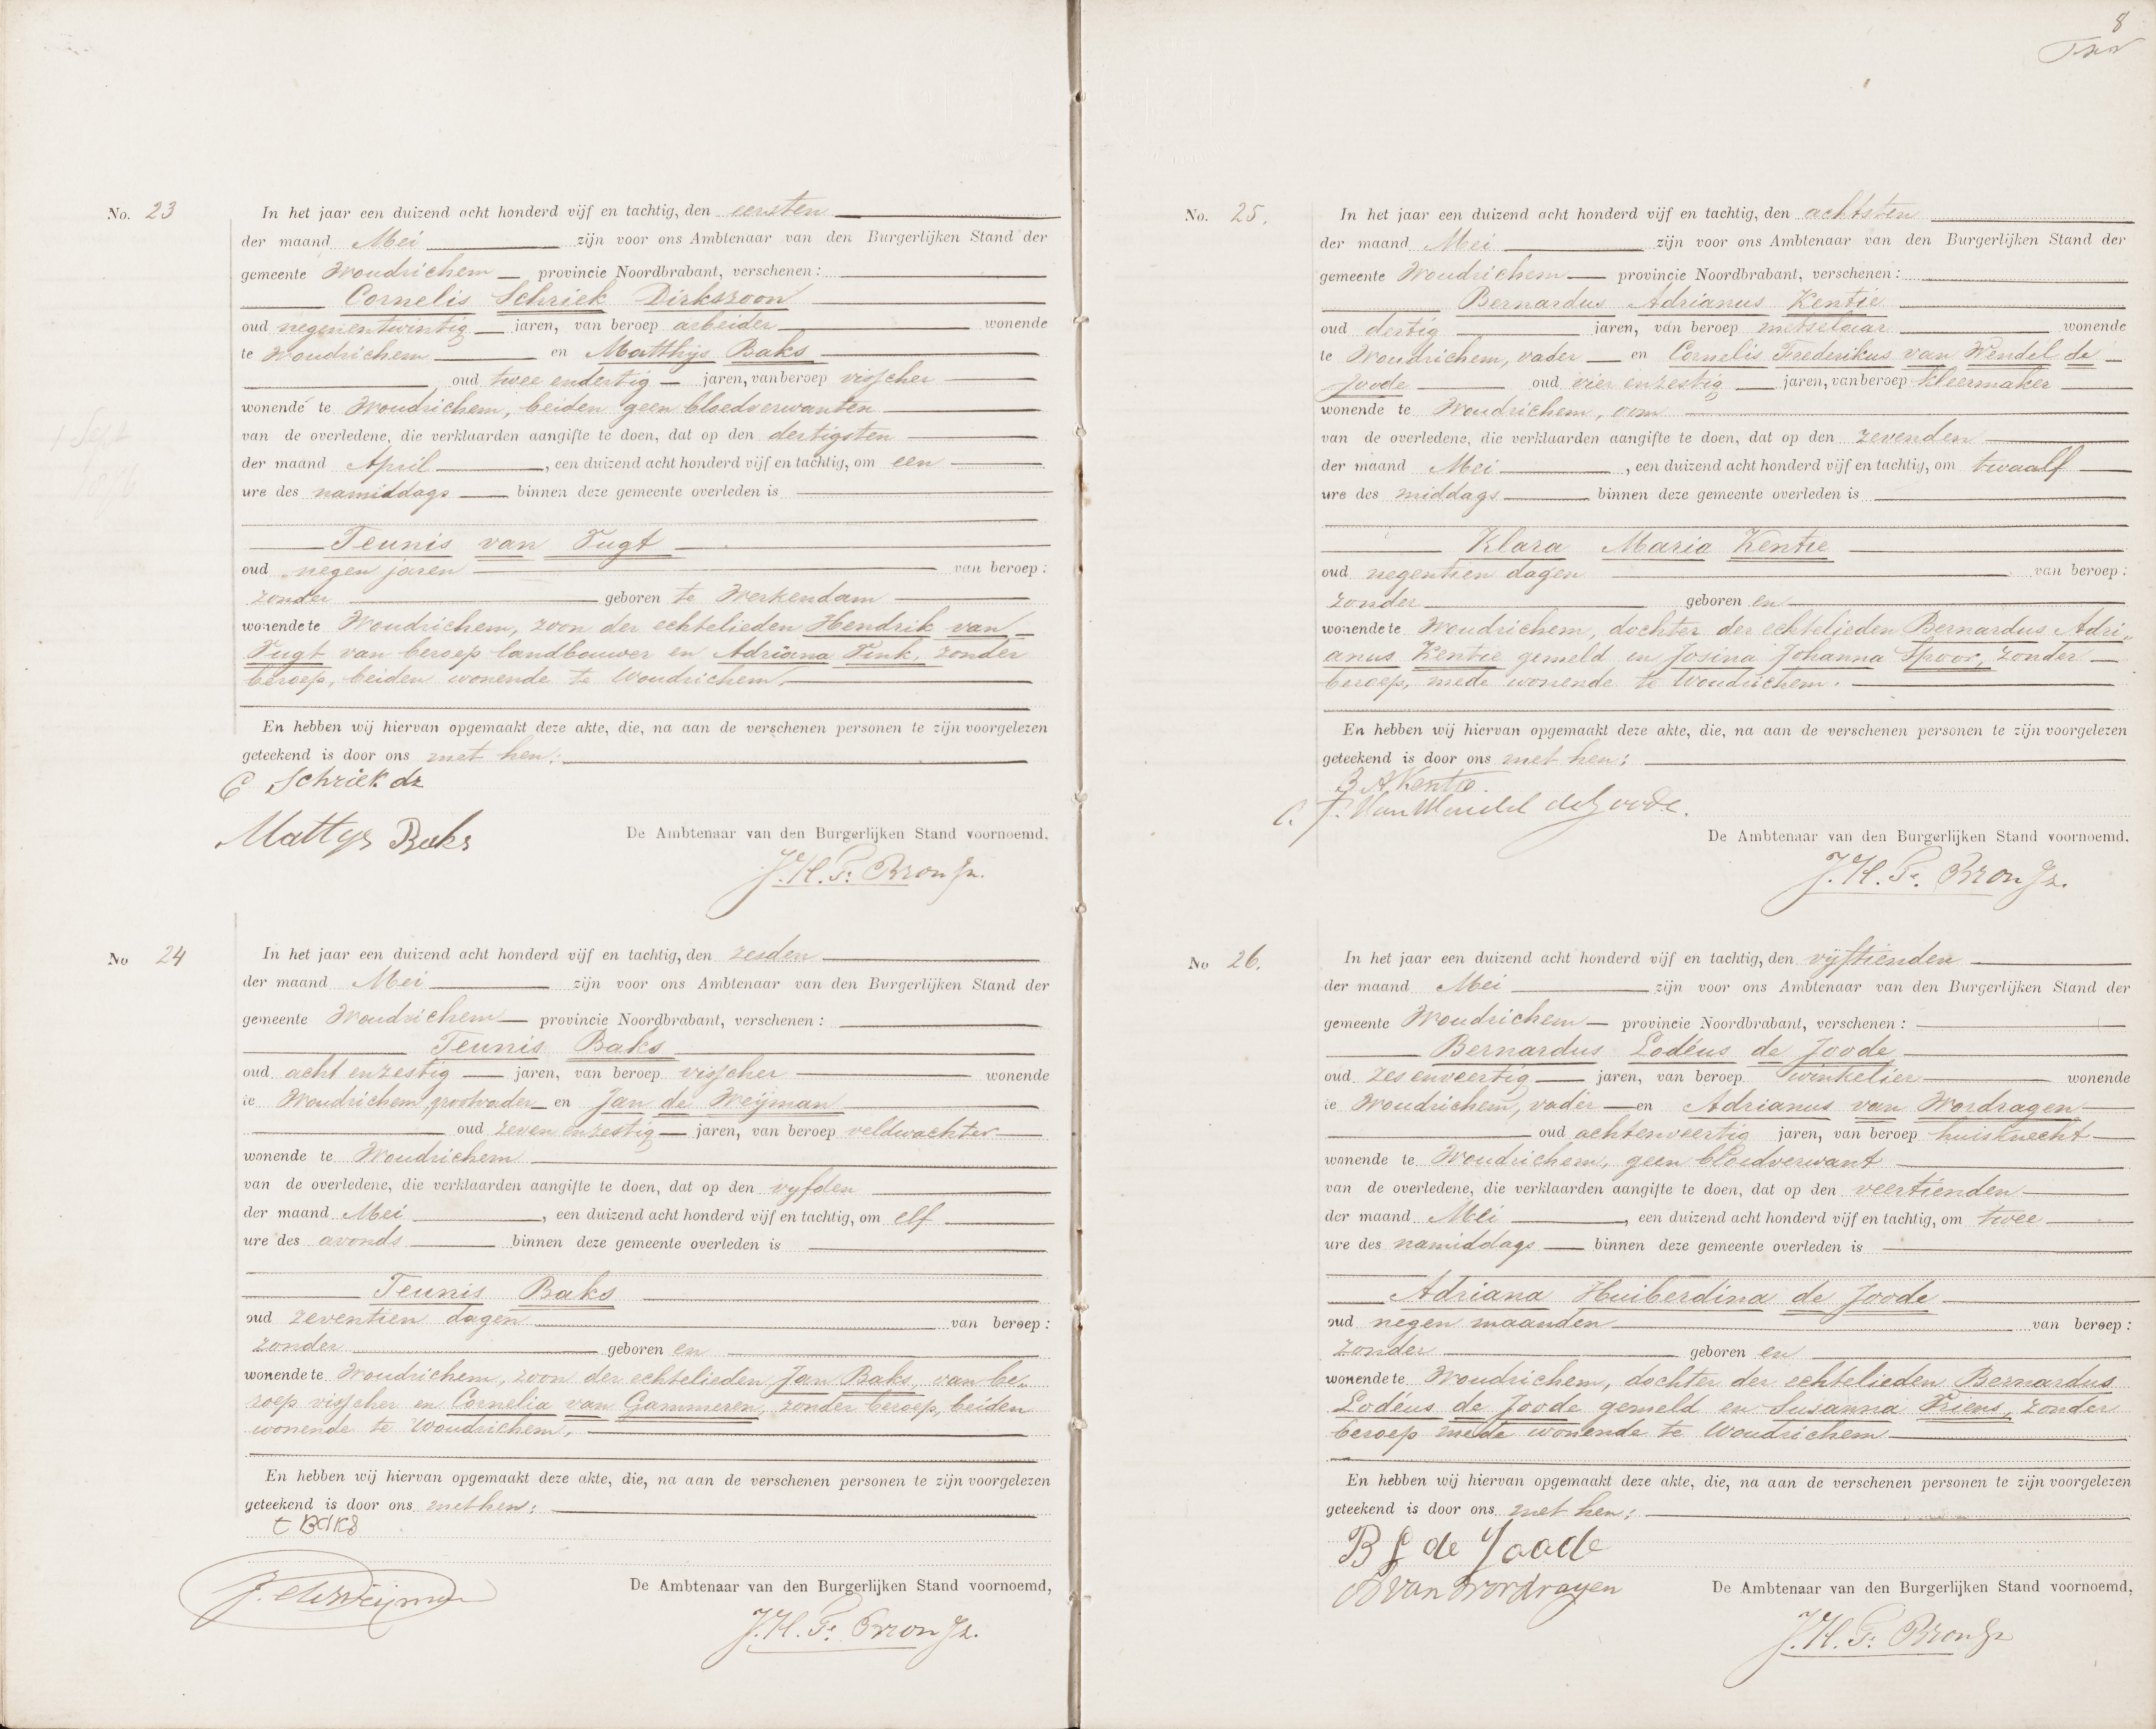 8
No. 23
In het jaar een duizend acht honderd vijf en tachtig, den eersten
der maand Mei zijn voor ons Ambtenaar van den Burgerlijken Stand der
gemeente Woudrichem provincie Noordbrabant, verschenen:
Cornelis Schriek Dirkszoon
oud negenentwintig jaren, van beroep arbeider wonende
te Woudrichem en Matthijs Baks
oud twee endertig jaren, van beroep visscher
wonende te Woudrichem, beiden geen bloedverwanten
van de overledene, die verklaarden aangifte te doen, dat op den dertigsten
der maand April, een duizend acht honderd vijf en tachtig, om een
ure des namiddags binnen deze gemeente overleden is
Teunis van Tugt
oud negen jaren van beroep:
zonder geboren te Werkendam
wonende te Woudrichem, zoon der echtelieden Hendrik van
Tugt van beroep landbouwer en Adriana Pink, zonder
beroep, beiden wonende te Woudrichem.
En hebben wij hiervan opgemaakt deze akte, die, na aan de verschenen personen te zijn voorgelezen
geteekend is door ons met hen:
C Schriek dz
Mattys Baks
De Ambtenaar van den Burgerlijken Stand voornoemd,
J. H. P. Bron Jz.
No 24
In het jaar een duizend acht honderd vijf en tachtig, den zesden
der maand Mei zijn voor ons Ambtenaar van den Burgerlijken Stand der
gemeente Woudrichem provincie Noordbrabant, verschenen:
Teunis Baks
oud acht enzestig jaren, van beroep visscher wonende
te Woudrichem, grootvader en Jan de Weijman
oud zeven enzestig jaren, van beroep veldwachter
wonende te Woudrichem
van de overledene, die verklaarden aangifte te doen, dat op den vyfden
der maand Mei, een duizend acht honderd vijf en tachtig, om elf
ure des avonds binnen deze gemeente overleden is
Teunis Baks
oud zeventien dagen van beroep:
zonder geboren en
wonende te Woudrichem, zoon der echtelieden Jan Baks, van be„
roep visscher en Cornelia van Gammeren, zonder beroep, beiden
wonende te Woudrichem.
En hebben wij hiervan opgemaakt deze akte, die, na aan de verschenen personen te zijn voorgelezen
geteekend is door ons met hen:
t Baks
De Ambtenaar van den Burgerlijken Stand voornoemd,
J. H. P. Bron Jz.
No. 25.
In het jaar een duizend acht honderd vijf en tachtig, den achtsten
der maand Mei zijn voor ons Ambtenaar van den Burgerlijken Stand der
gemeente Woudrichem provincie Noordbrabant, verschenen:
Bernardus Adrianus Kentie
oud dertig jaren, van beroep metselaar wonende
te Woudrichem, vader en Cornelis Frederikus van Wendel de
Joode oud vier enzestig jaren, van beroep kleermaker
wonende te Woudrichem, oom
van de overledene, die verklaarden aangifte te doen, dat op den zevenden
der maand Mei, een duizend acht honderd vijf en tachtig, om twaalf
ure des middags binnen deze gemeente overleden is
Klara Maria Kentie
oud negentien dagen van beroep:
zonder geboren en
wonende te Woudrichem, dochter der echtelieden Bernardus Adri„
anus Kentie gemeld en Josina Johanna Spoor, zonder
beroep, mede wonende te Woudrichem.
En hebben wij hiervan opgemaakt deze akte, die, na aan de verschenen personen te zijn voorgelezen
geteekend is door ons met hen:
B A Kentie.
C. F. Van Wendel de Joode.
De Ambtenaar van den Burgerlijken Stand voornoemd,
J. H. P. Bron Jz.
No 26.
In het jaar een duizend acht honderd vijf en tachtig, den vyftienden
der maand Mei zijn voor ons Ambtenaar van den Burgerlijken Stand der
gemeente Woudrichem provincie Noordbrabant, verschenen:
Bernardus Lodéus de Joode
oud zes enveertig jaren, van beroep winkelier wonende
te Woudrichem, vader en Adrianus van Wordragen
oud achtenveertig jaren, van beroep huisknecht
wonende te Woudrichem, geen bloedverwant
van de overledene, die verklaarden aangifte te doen, dat op den veertienden
der maand Mei, een duizend acht honderd vijf en tachtig, om twee
ure des namiddags binnen deze gemeente overleden is
Adriana Huiberdina de Joode
oud negen maanden van beroep:
zonder geboren en
wonende te Woudrichem, dochter der echtelieden Bernardus
Lodéus de Joode gemeld en Susanna Friens, zonder
beroep mede wonende te Woudrichem
En hebben wij hiervan opgemaakt deze akte, die, na aan de verschenen personen te zijn voorgelezen
geteekend is door ons met hen:
B L de Joode
A van Wordragen
De Ambtenaar van den Burgerlijken Stand voornoemd,
J. H. P. Bron Jz